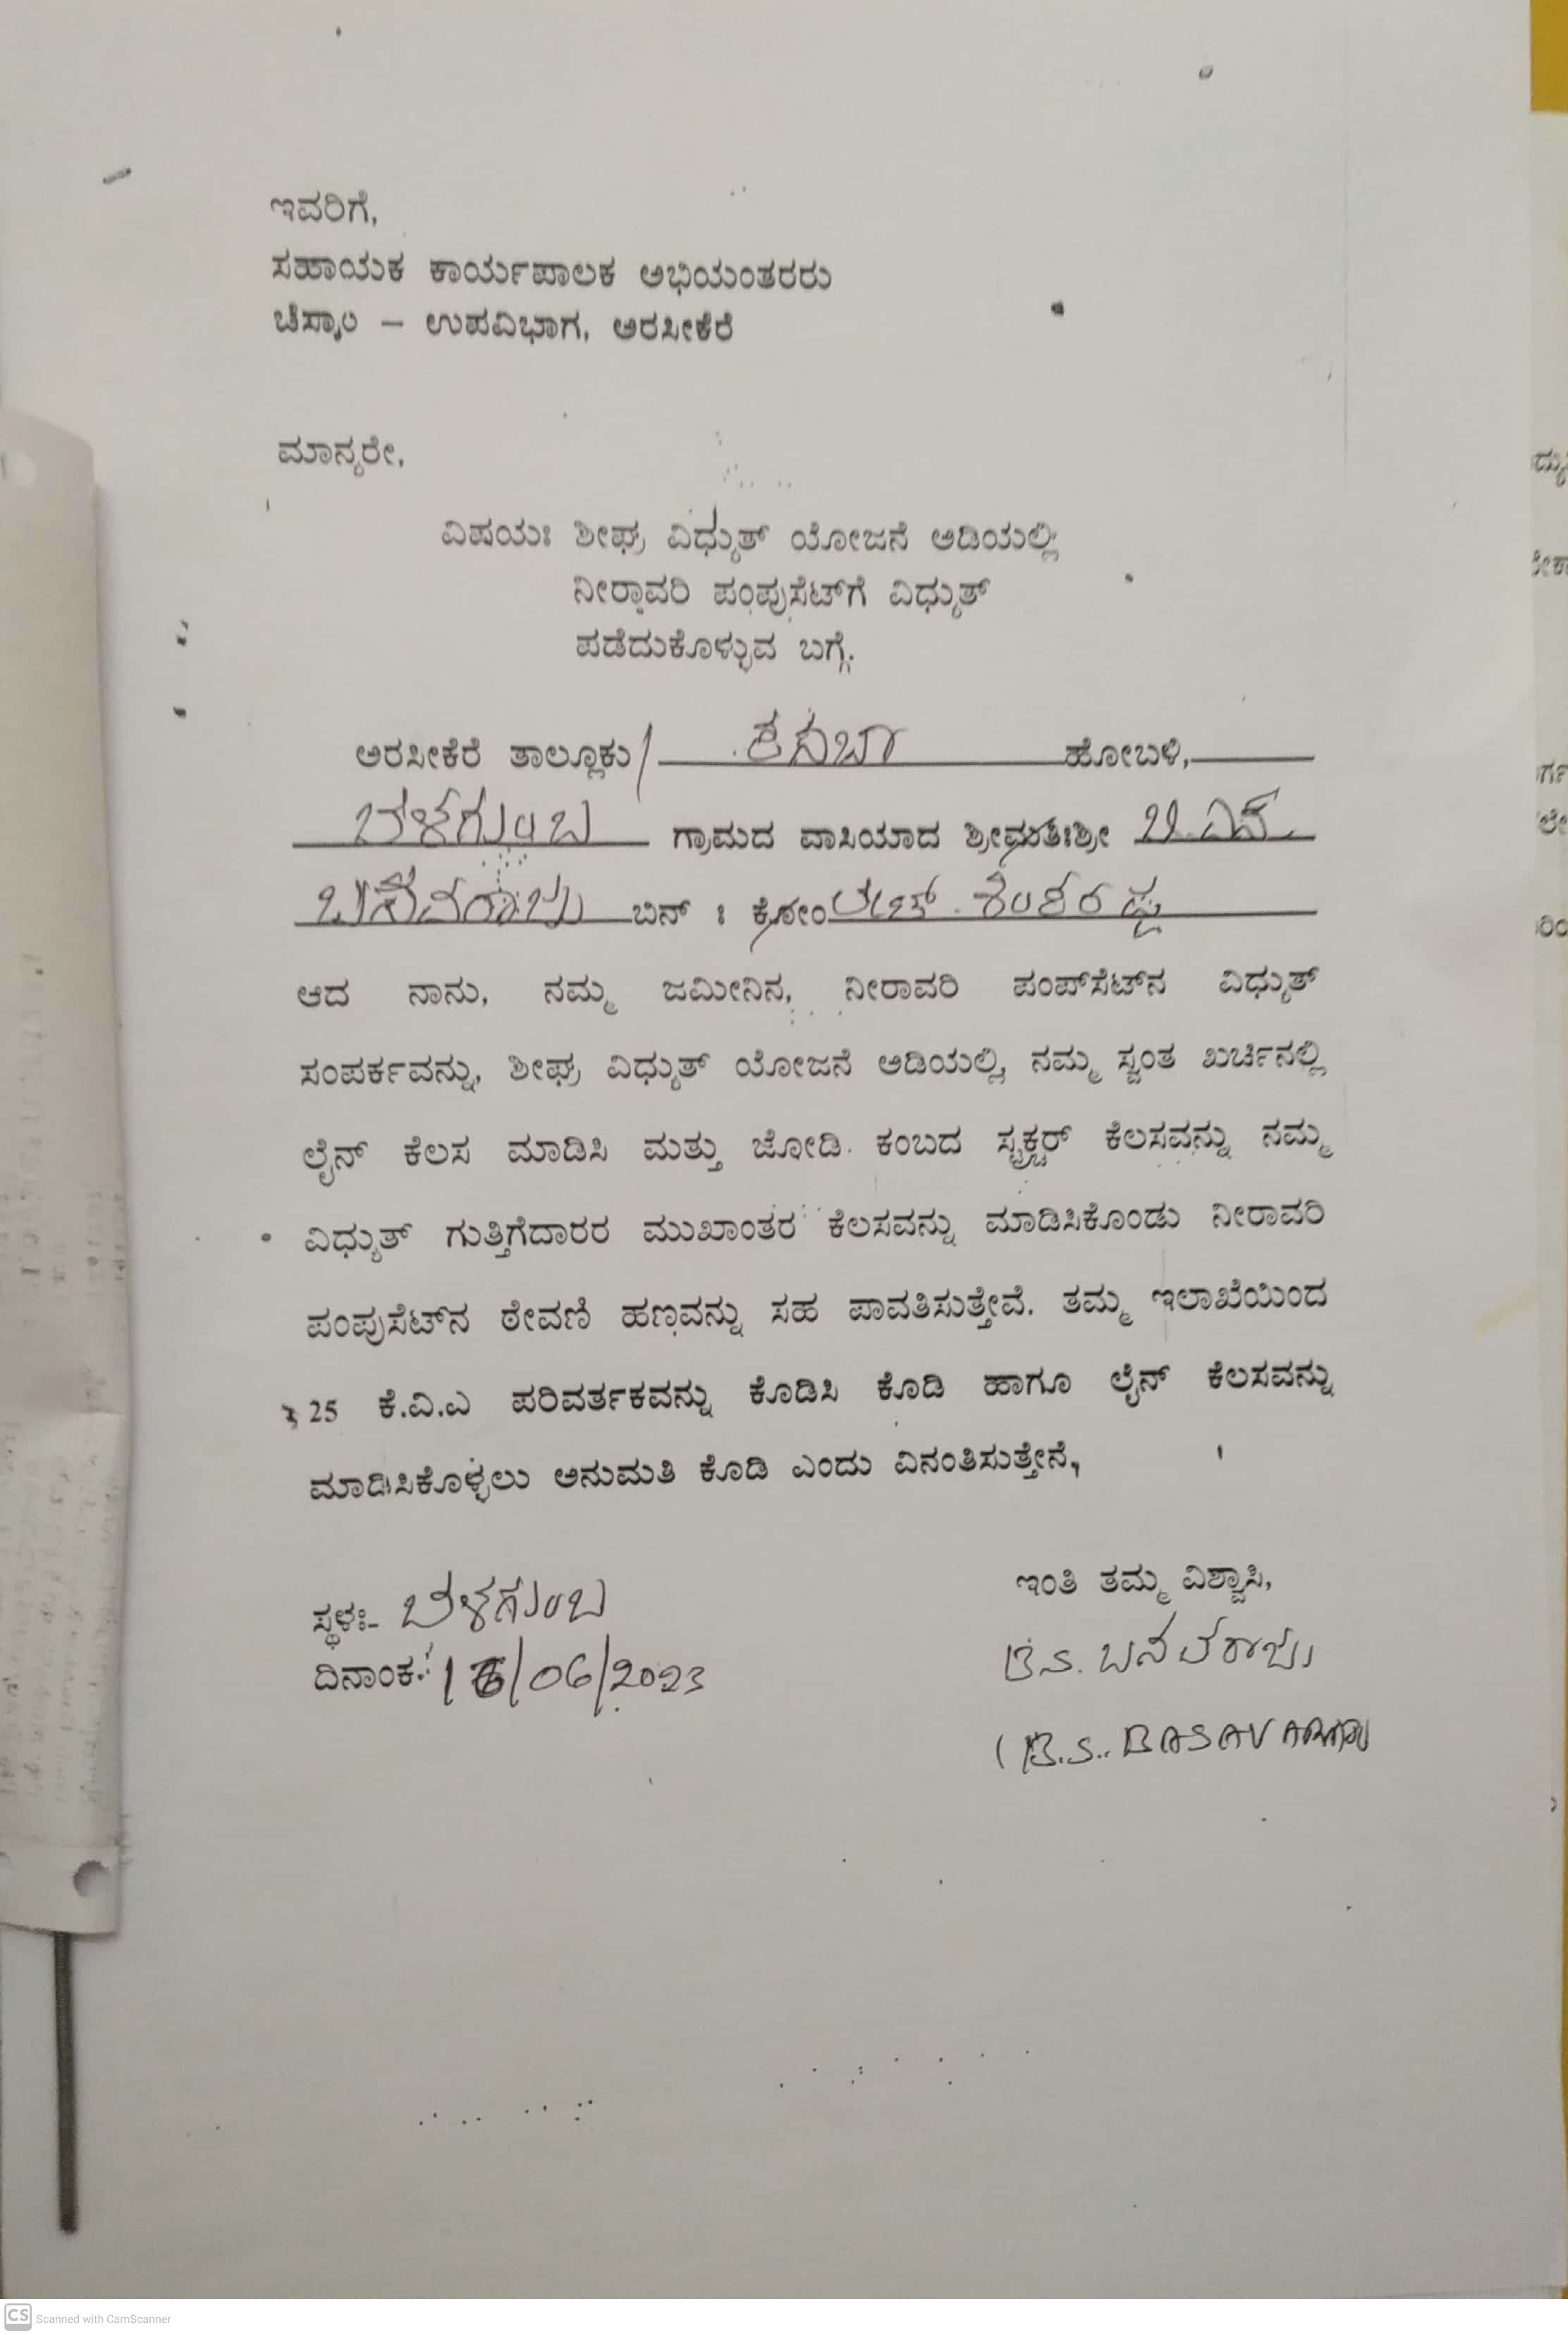 ಇವರಿಗೆ,
ಸಹಾಯಕ ಕಾರ್ಯಪಾಲಕ ಅಭಿಯಂತರರು
ಚೆಸ್ಕಾಂ – ಉಪವಿಭಾಗ, ಅರಸೀಕೆರೆ
ಮಾನ್ಯರೇ,
ವಿಷಯಃ ಶೀಘ್ರ ವಿಧ್ಯುತ್ ಯೋಜನೆ ಅಡಿಯಲ್ಲಿ
ನೀರಾವರಿ ಪಂಪುಸೆಟ್‌ಗೆ ವಿಧ್ಯುತ್
ಪಡೆದುಕೊಳ್ಳುವ ಬಗ್ಗೆ.
ಅರಸೀಕೆರೆ ತಾಲ್ಲೂಕು/ ಕಸಬಾ ಹೋಬಳಿ,
ಬೆಳಗುಂಬ ಗ್ರಾಮದ ವಾಸಿಯಾದ ಶ್ರೀಮತಿಃಶ್ರೀ ಬಿ.ಎಸ್
ಬಸವರಾಜು ಬಿನ್ : ಕೋಂ ಲೇಟ್. ಶಂಕರಪ್ಪ
ಆದ ನಾನು, ನಮ್ಮ ಜಮೀನಿನ, ನೀರಾವರಿ ಪಂಪ್‌ಸೆಟ್‌ನ ವಿಧ್ಯುತ್
ಸಂಪರ್ಕವನ್ನು, ಶೀಘ್ರ ವಿಧ್ಯುತ್ ಯೋಜನೆ ಅಡಿಯಲ್ಲಿ, ನಮ್ಮ ಸ್ವಂತ ಖರ್ಚಿನಲ್ಲಿ
ಲೈನ್ ಕೆಲಸ ಮಾಡಿಸಿ ಮತ್ತು ಜೋಡಿ ಕಂಬದ ಸ್ಟ್ರಕ್ಚರ್ ಕೆಲಸವನ್ನು ನಮ್ಮ
ವಿಧ್ಯುತ್ ಗುತ್ತಿಗೆದಾರರ ಮುಖಾಂತರ ಕೆಲಸವನ್ನು ಮಾಡಿಸಿಕೊಂಡು ನೀರಾವರಿ
ಪಂಪುಸೆಟ್‌ನ ಠೇವಣಿ ಹಣವನ್ನು ಸಹ ಪಾವತಿಸುತ್ತೇವೆ. ತಮ್ಮ ಇಲಾಖೆಯಿಂದ
25 ಕೆ.ವಿ.ಎ ಪರಿವರ್ತಕವನ್ನು ಕೊಡಿಸಿ ಕೊಡಿ ಹಾಗೂ ಲೈನ್ ಕೆಲಸವನ್ನು
ಮಾಡಿಸಿಕೊಳ್ಳಲು ಅನುಮತಿ ಕೊಡಿ ಎಂದು ವಿನಂತಿಸುತ್ತೇನೆ,
ಇಂತಿ ತಮ್ಮ ವಿಶ್ವಾಸಿ,
ಸ್ಥಳಃ- ಬೆಳಗುಂಬ
B.S. ಬಸವರಾಜು
ದಿನಾಂಕ: /06/2023
(B.S. BASAVARAJU
CS Scanned with CamScanner